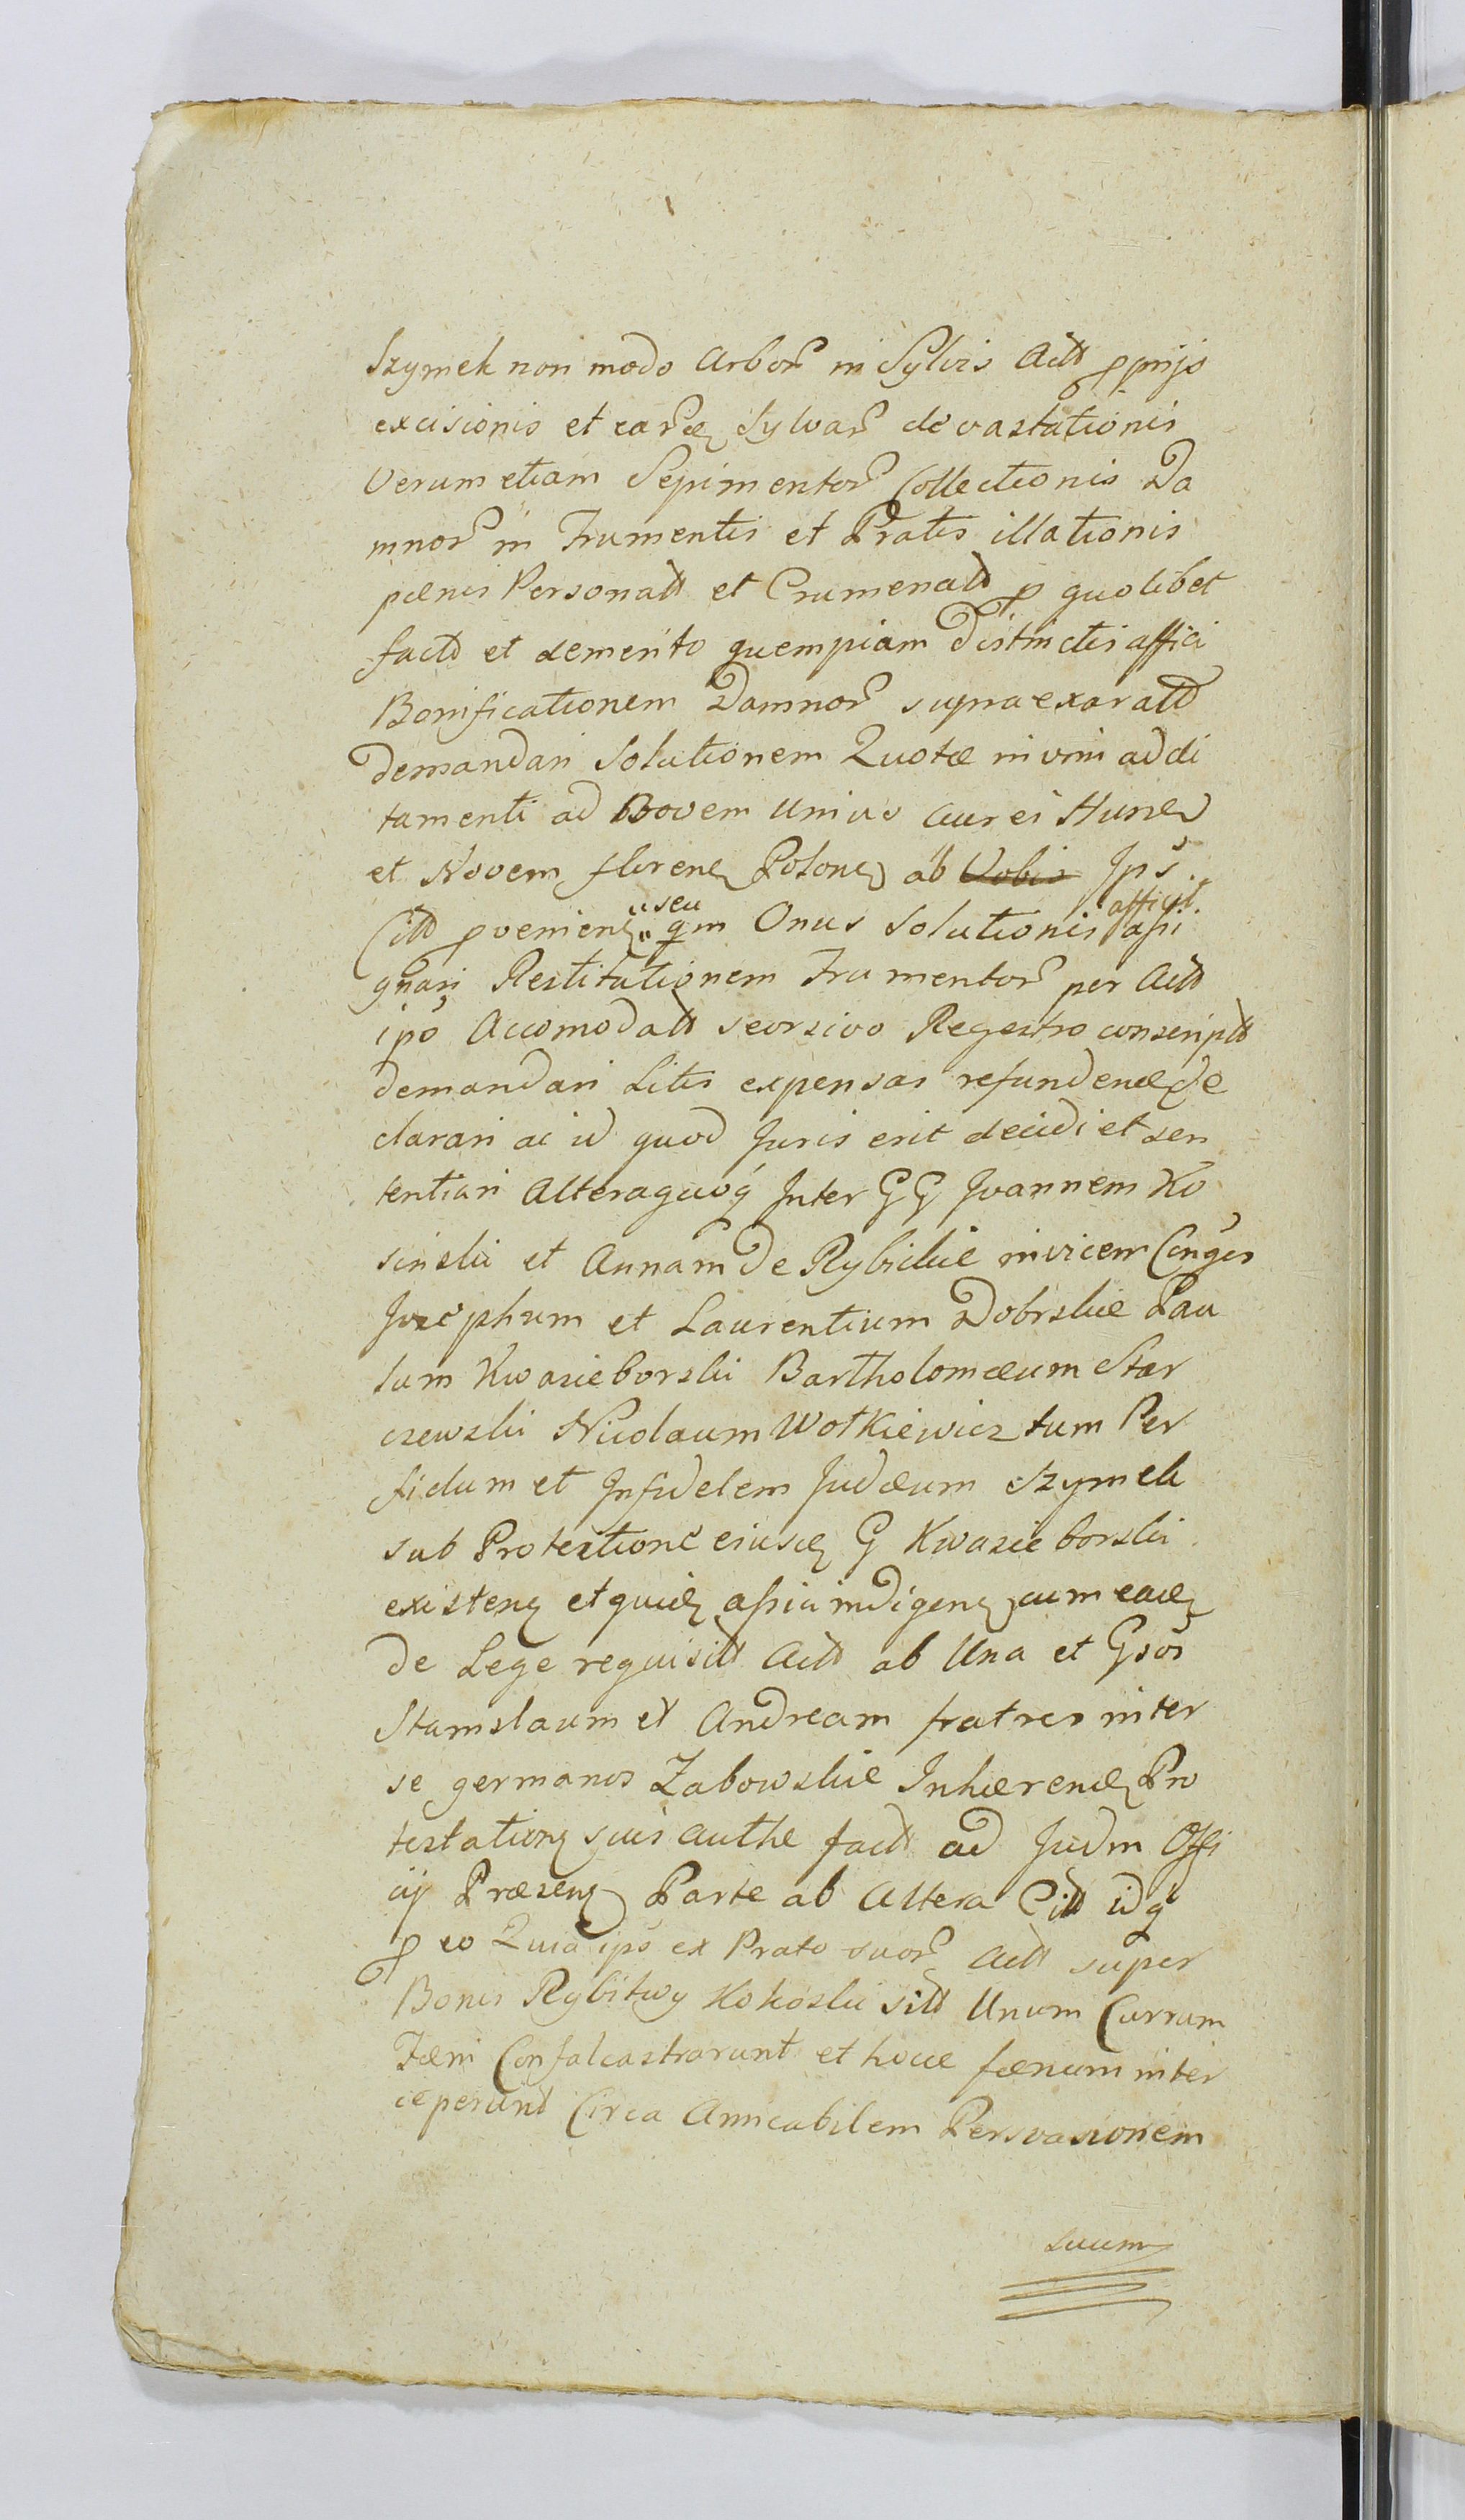 Szymek non modo Arbor in Sylvis Actt pprijs
excisionis et earde Sylvar devastationis
Verum etiam Sepimentor Collectionis Da
mnor in Frumentis et Pratis illationis
pænis Personatt et Crumenatt p quolibet
facto et demerito quempiam distinctis affici
Bonificationem Damnor supraexaratt
demandari Solutionem Quotæ nivini addi
tamenti ad Bovem Unius aurei Hung
et Novem floren Polon ab Vobis Ips
Citt pvenien "seu" qm Onus Solutionis afficit assi
gnari Restitutionem Frumentor per Actt
ips Accomodatt seorsivo Regestro conscriptt
demandari Litis expensas refunden de
clarari ac id quod Juris erit decidi et sen
tentiari Alteraquoq Inter GG Joannem Ko
sinski et Annam de Rybickie invicem Conges
Josephum et Laurentium Dobrskie Pau
lum Kwasieborski Bartholomæum Star
czewski Nicolaum Wotkiewicz tum Per
fidum et Infidelem Judæum Szymek
sub Protectione eiusd G Kwasieborski
existen et quid assiu indigen cum ead
de Lege requisitt Actt ab Una et Gsos
Stanislaum et Andream fratres inter
se germanos Zabowskie Inhæren Pro
testation suis authe factt ad Judm Offi
cij Præsen Parte ab Altera Citt idq
p eo Quia ips ex Prato suor Actt super
Bonis Rybitwy Kokoski sitt Unum Currum
Fæni Confalcastrarunt et hocce fænum inter
ceperunt Circa Amicabilem Persvasionem
suum